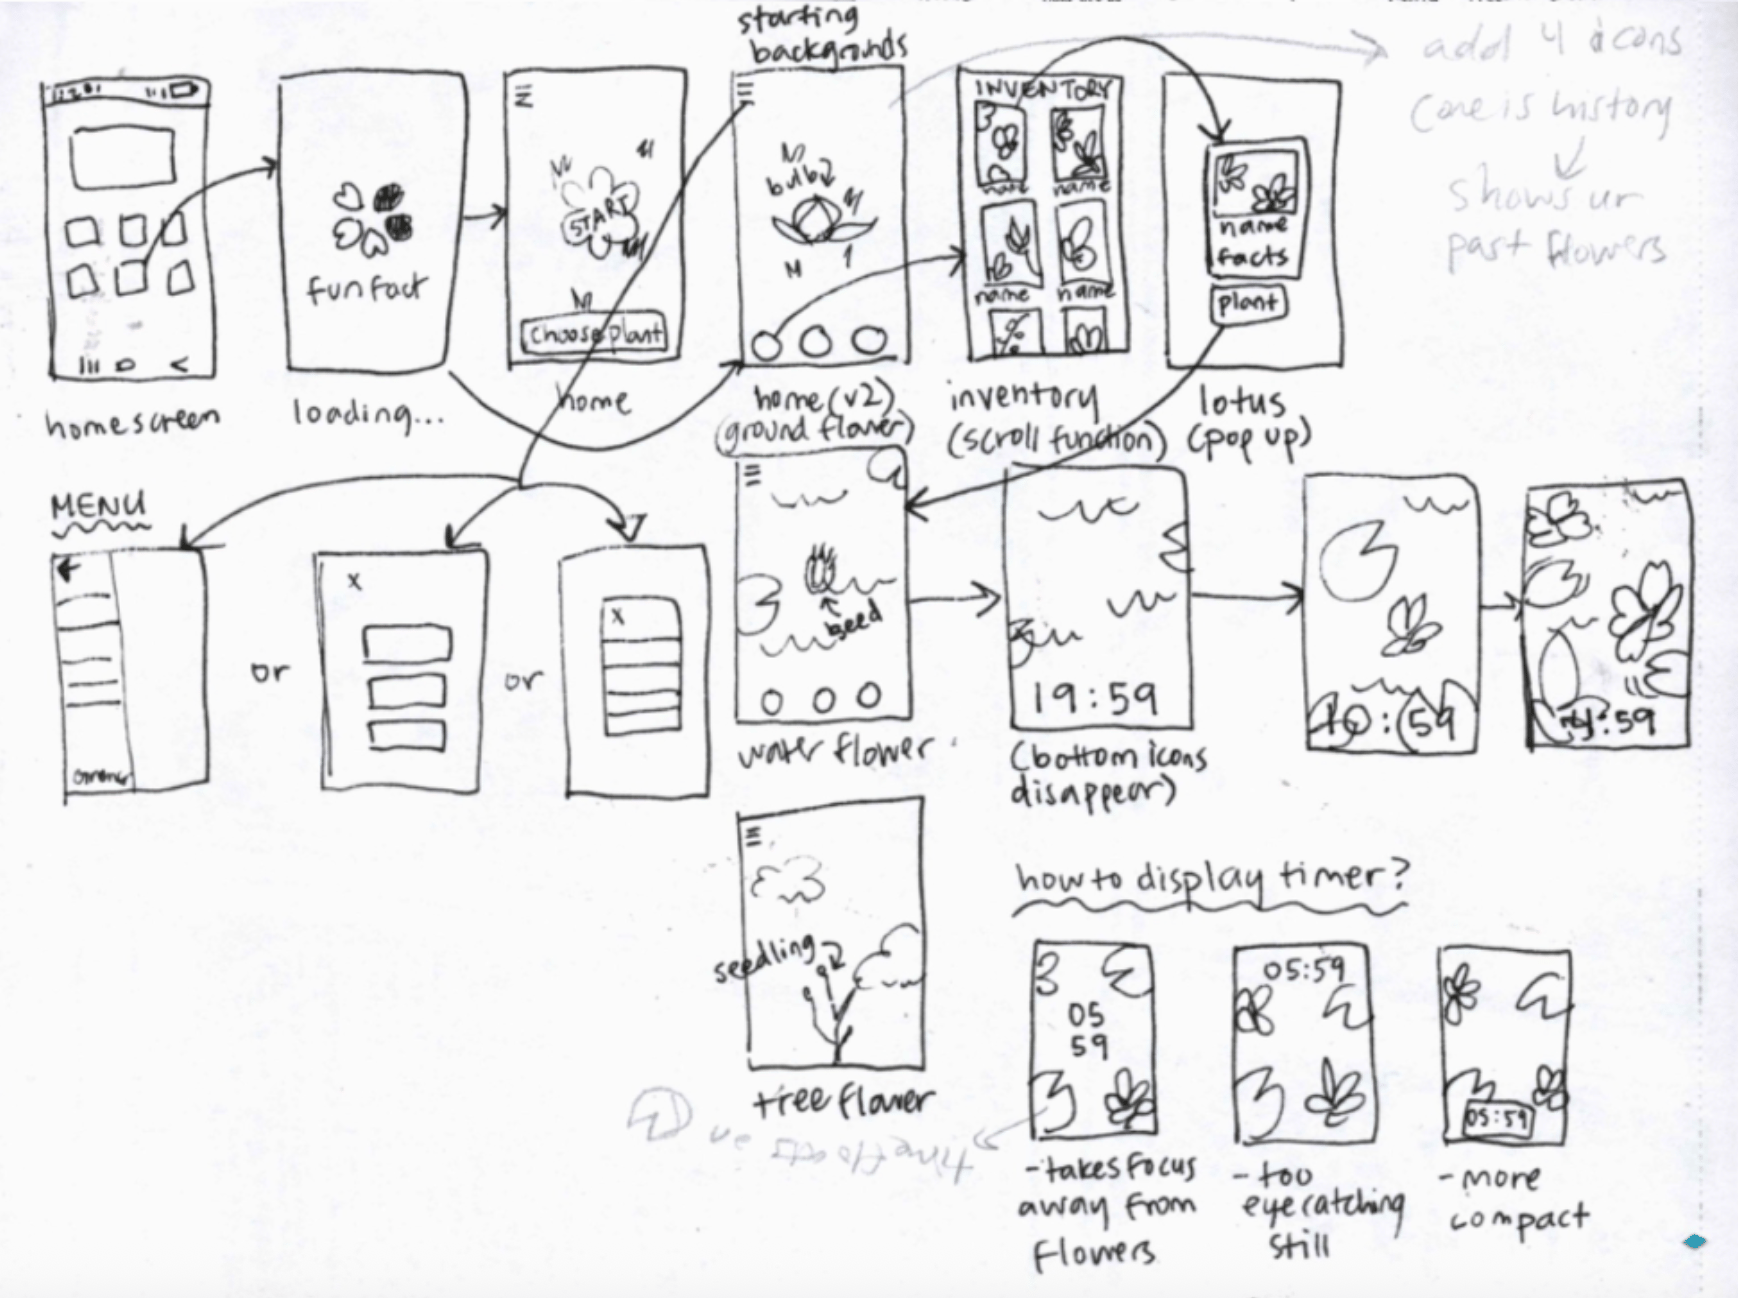 starting
backgrounds
add 4 icons
(one is history
shows ur
past flowers
START
Choose plant
fun fact
bulb
INVENTORY
name
name
name
name
name
facts
plant
homescreen
loading...
home
home (v2)
(ground flower)
inventory
(scroll function)
lotus
(pop up)
MENU
or
or
seed
19:59
10:59
:59
water flower
(bottom icons
disappear)
seedling
tree flower
how to display timer?
05
59
05:59
05:59
time floats on
-takes focus
away from
flowers
- too
eyecatching
still
- more
compact